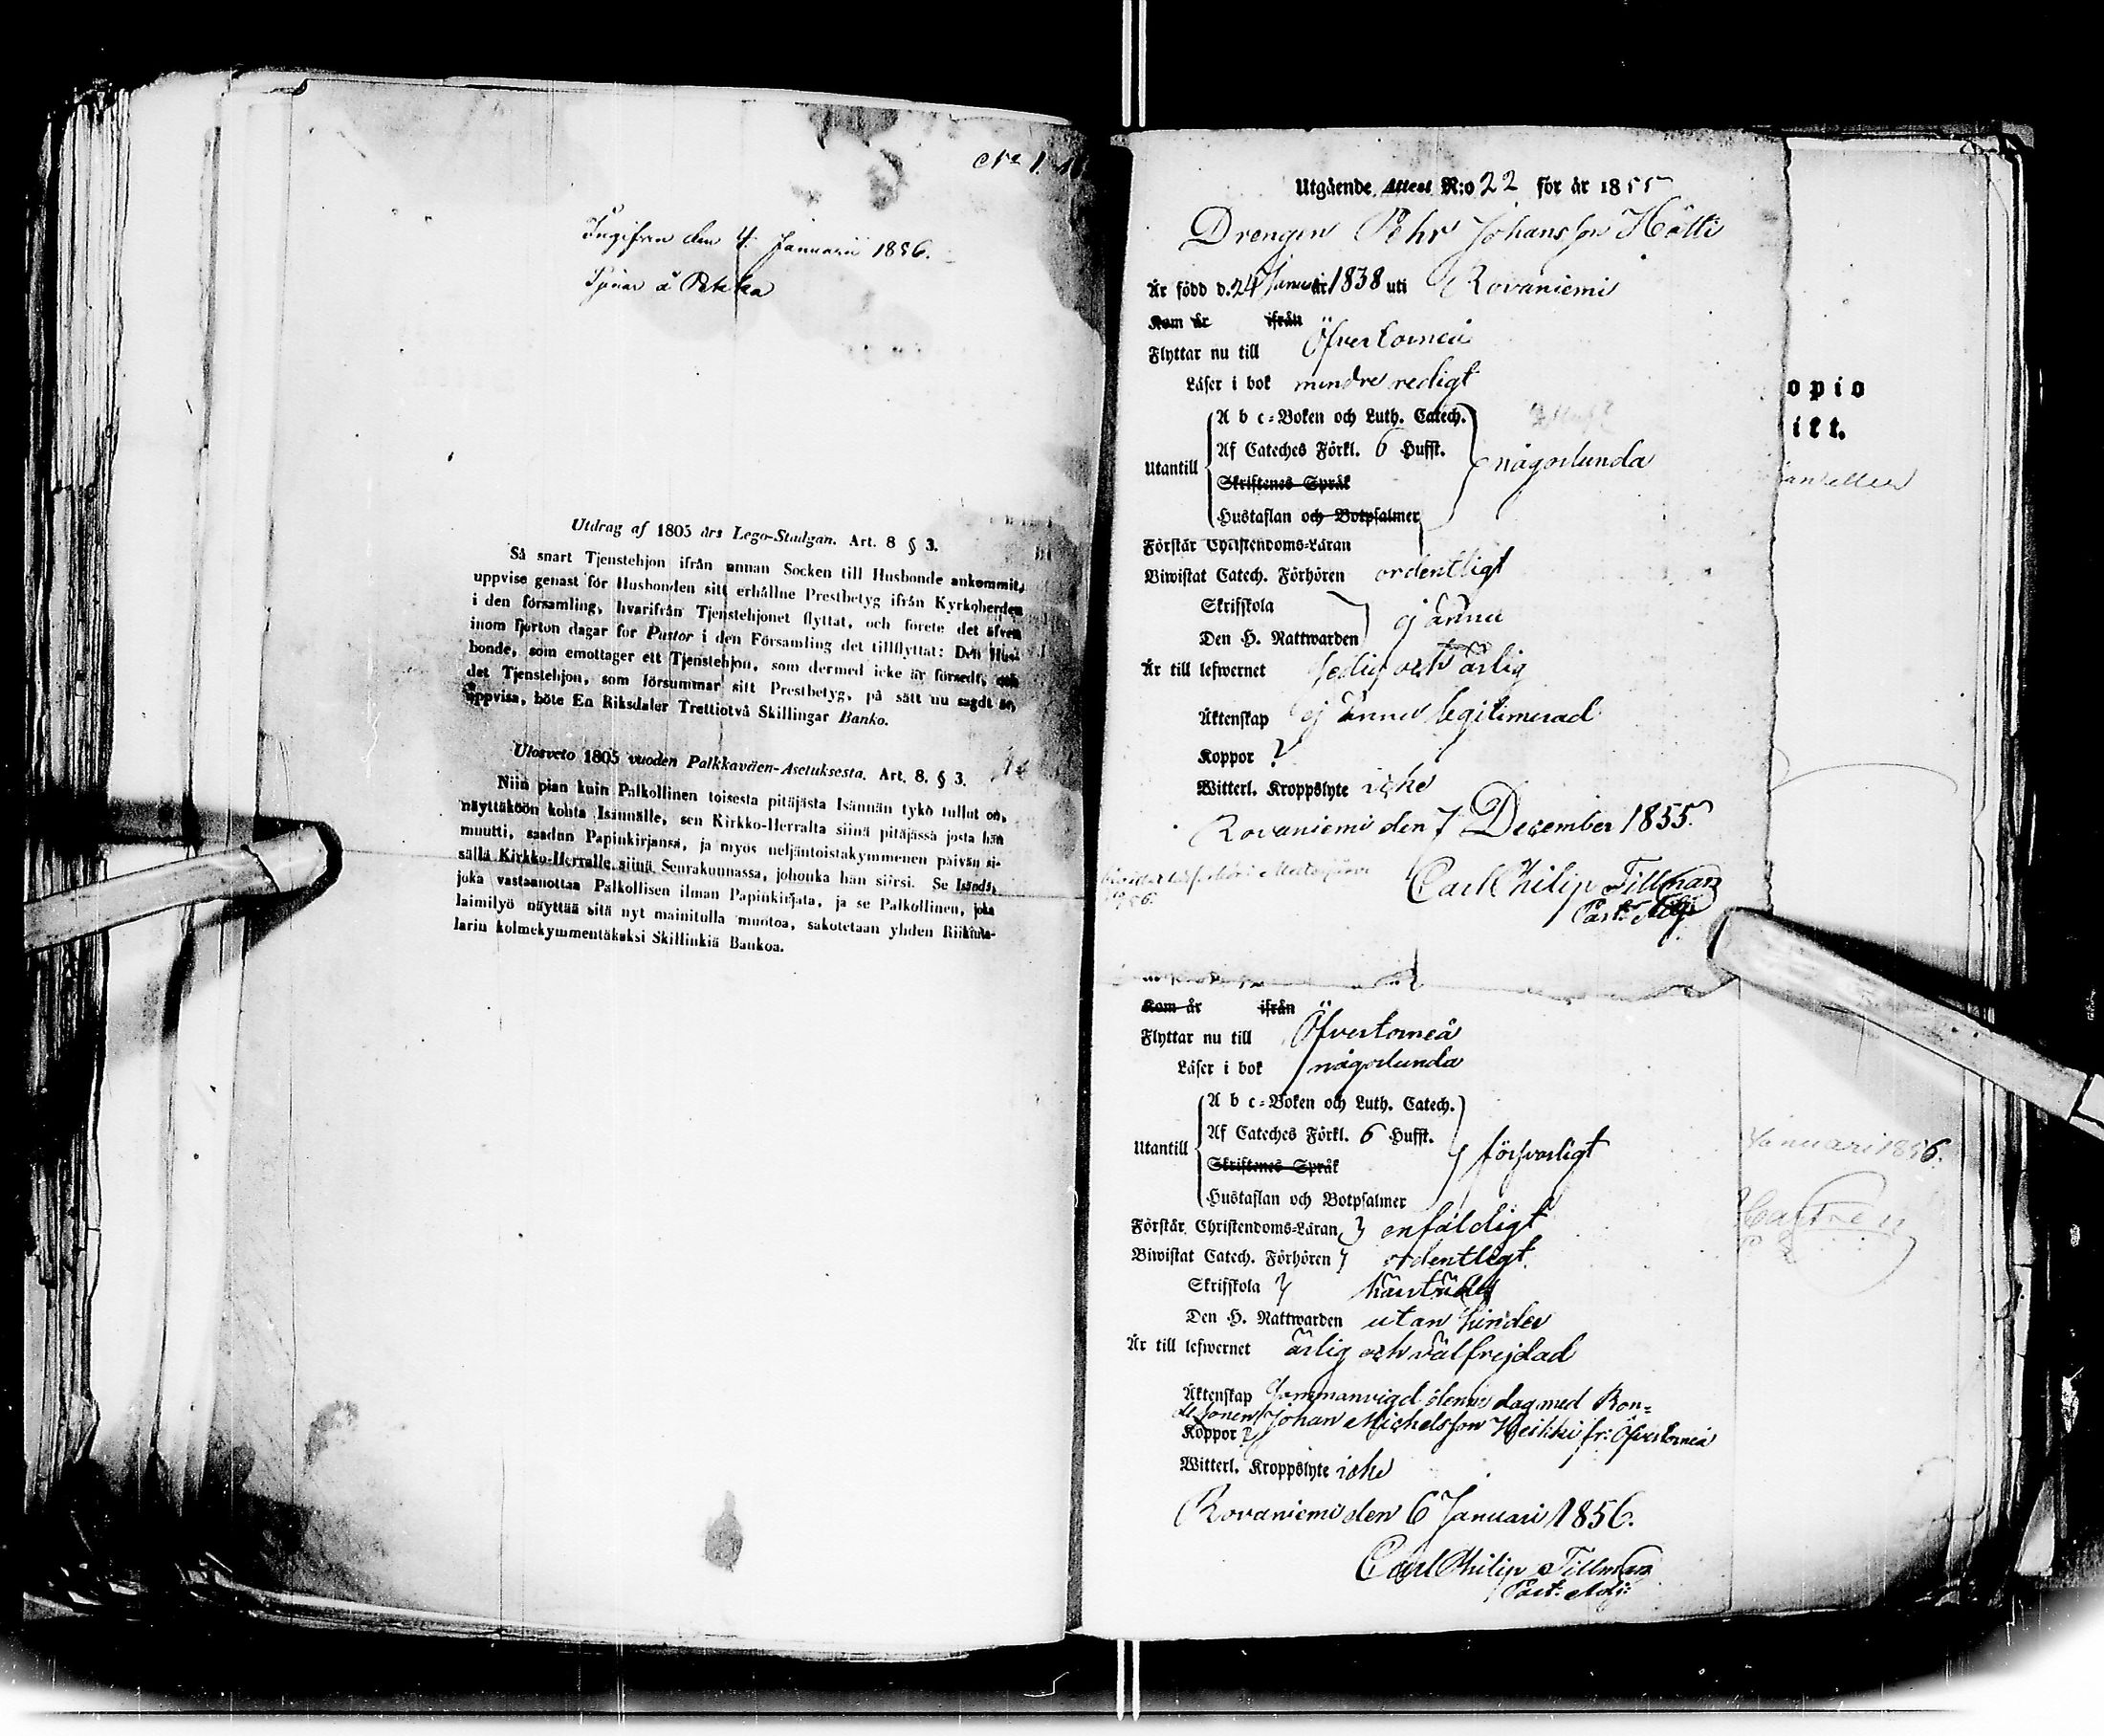 No 1.
Ingifven den 4 Januarii 1856.
Tjenar å Pekka
Utdrag af 1805 års Lego-Stadgan. Art. 8 § 3.
Så snart Tjenstehjon ifrån annan Socken till Husbonde ankommit,
uppvise genast för Husbonden sitt erhållne Prestbetyg ifrån Kyrkoherden
i den församling, hvarifrån Tjenstehjonet flyttat, och förete det äfven
inom fjorton dagar för Pastor i den Församling det tillflyttat: Den Hus-
bonde, som emottager ett Tjenstehjon, som dermed icke är försedt, och
det Tjenstehjon, som försummar sitt Prestbetyg, på sätt nu sagdt är,
uppvisa, böte En Riksdaler Trettiotvå Skillingar Banko.
Ulosveto 1805 vuoden Palkkaväen-Asetuksesta. Art. 8. § 3.
Niin pian kuin Palkollinen toisesta pitäjästä Isännän tykö tullut on,
näyttäköön kohta Isännälle, sen Kirkko-Herralta siinä pitäjässä josta hän
muutti, saadun Papinkirjansa, ja myös neljäntoistakymmenen päivän si-
sällä Kirkko-Herralle siinä Seurakunnassa, johonka hän siirsi. Se Isändä,
joka vastaanottaa Palkollisen ilman Papinkirjata, ja se Palkollinen, joka
laimilyö näyttää sitä nyt mainitulla muotoa, sakotetaan yhden Riikinta-
larin kolmekymmentäkaksi Skillinkiä Bankoa.
Utgående Attest N:o 22 för år 1855
Drengen Pehr Johansson Hötti
Är född d. 24 Januari år 1838 uti Rovaniemi
Kom år ifrån
Flyttar nu till Öfvertorneå
Läser i bok mindre redigt
A b c-Boken och Luth. Catech.
Af Cateches Förkl. 6 Hufst.
Utantill någorlunda
Skriftenes Språk
Hustaflan och Botpsalmer
Förstår Christendoms-Läran
Biwistat Catech. Förhören ordentligt
Skrifskola
ej ännu
Den H. Nattwarden
Är till lefwernet sedig och ärlig
Äktenskap ej ännu legitimerad
Koppor ?
Witterl. Kroppslyte icke
Rovaniemi den 7 December 1855.
Carl Philip Tillman
Past: Adj:
Kom år ifrån
Flyttar nu till Öfvertorneå
Läser i bok någorlunda
A b c-Boken och Luth. Catech.
Af Cateches Förkl. 6 Hufst.
Utantill försvarligt
Skriftenes Språk
Hustaflan och Botpsalmer
Förstår Christendoms-Läran enfaldigt
Biwistat Catech. Förhören ordentligt
Skrifskola
Den H. Nattwarden utan hinder
Är till lefwernet ärlig och välfrejdad
Äktenskap Sammanvigd denna dag med Bon-
desonen Johan Michelsson Heikki fr: Öfvertorneå
Koppor ?
Witterl. Kroppslyte icke
Rovaniemi den 6 Januari 1856.
Carl Philip Tillman
Past: Adj:
opio
ikt.
Januari 1856.
Castrén